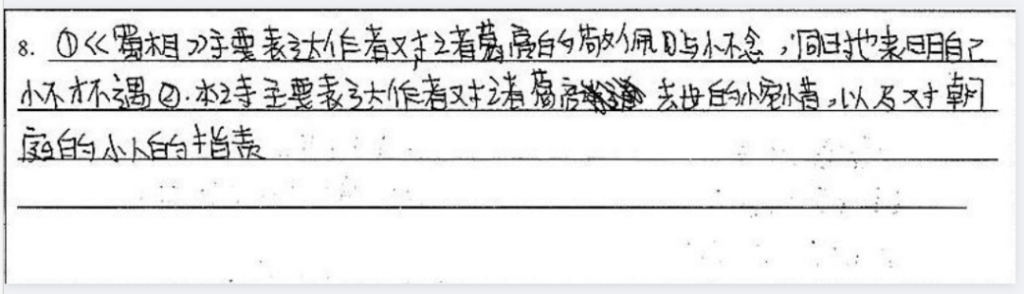 8. ①《蜀相》主要表达作者对诸葛亮的敬佩与怀念,同时也表明自己
怀才不遇②.本诗主要表达作者对诸葛亮去世的惋惜,以及对朝
廷的小人的指责